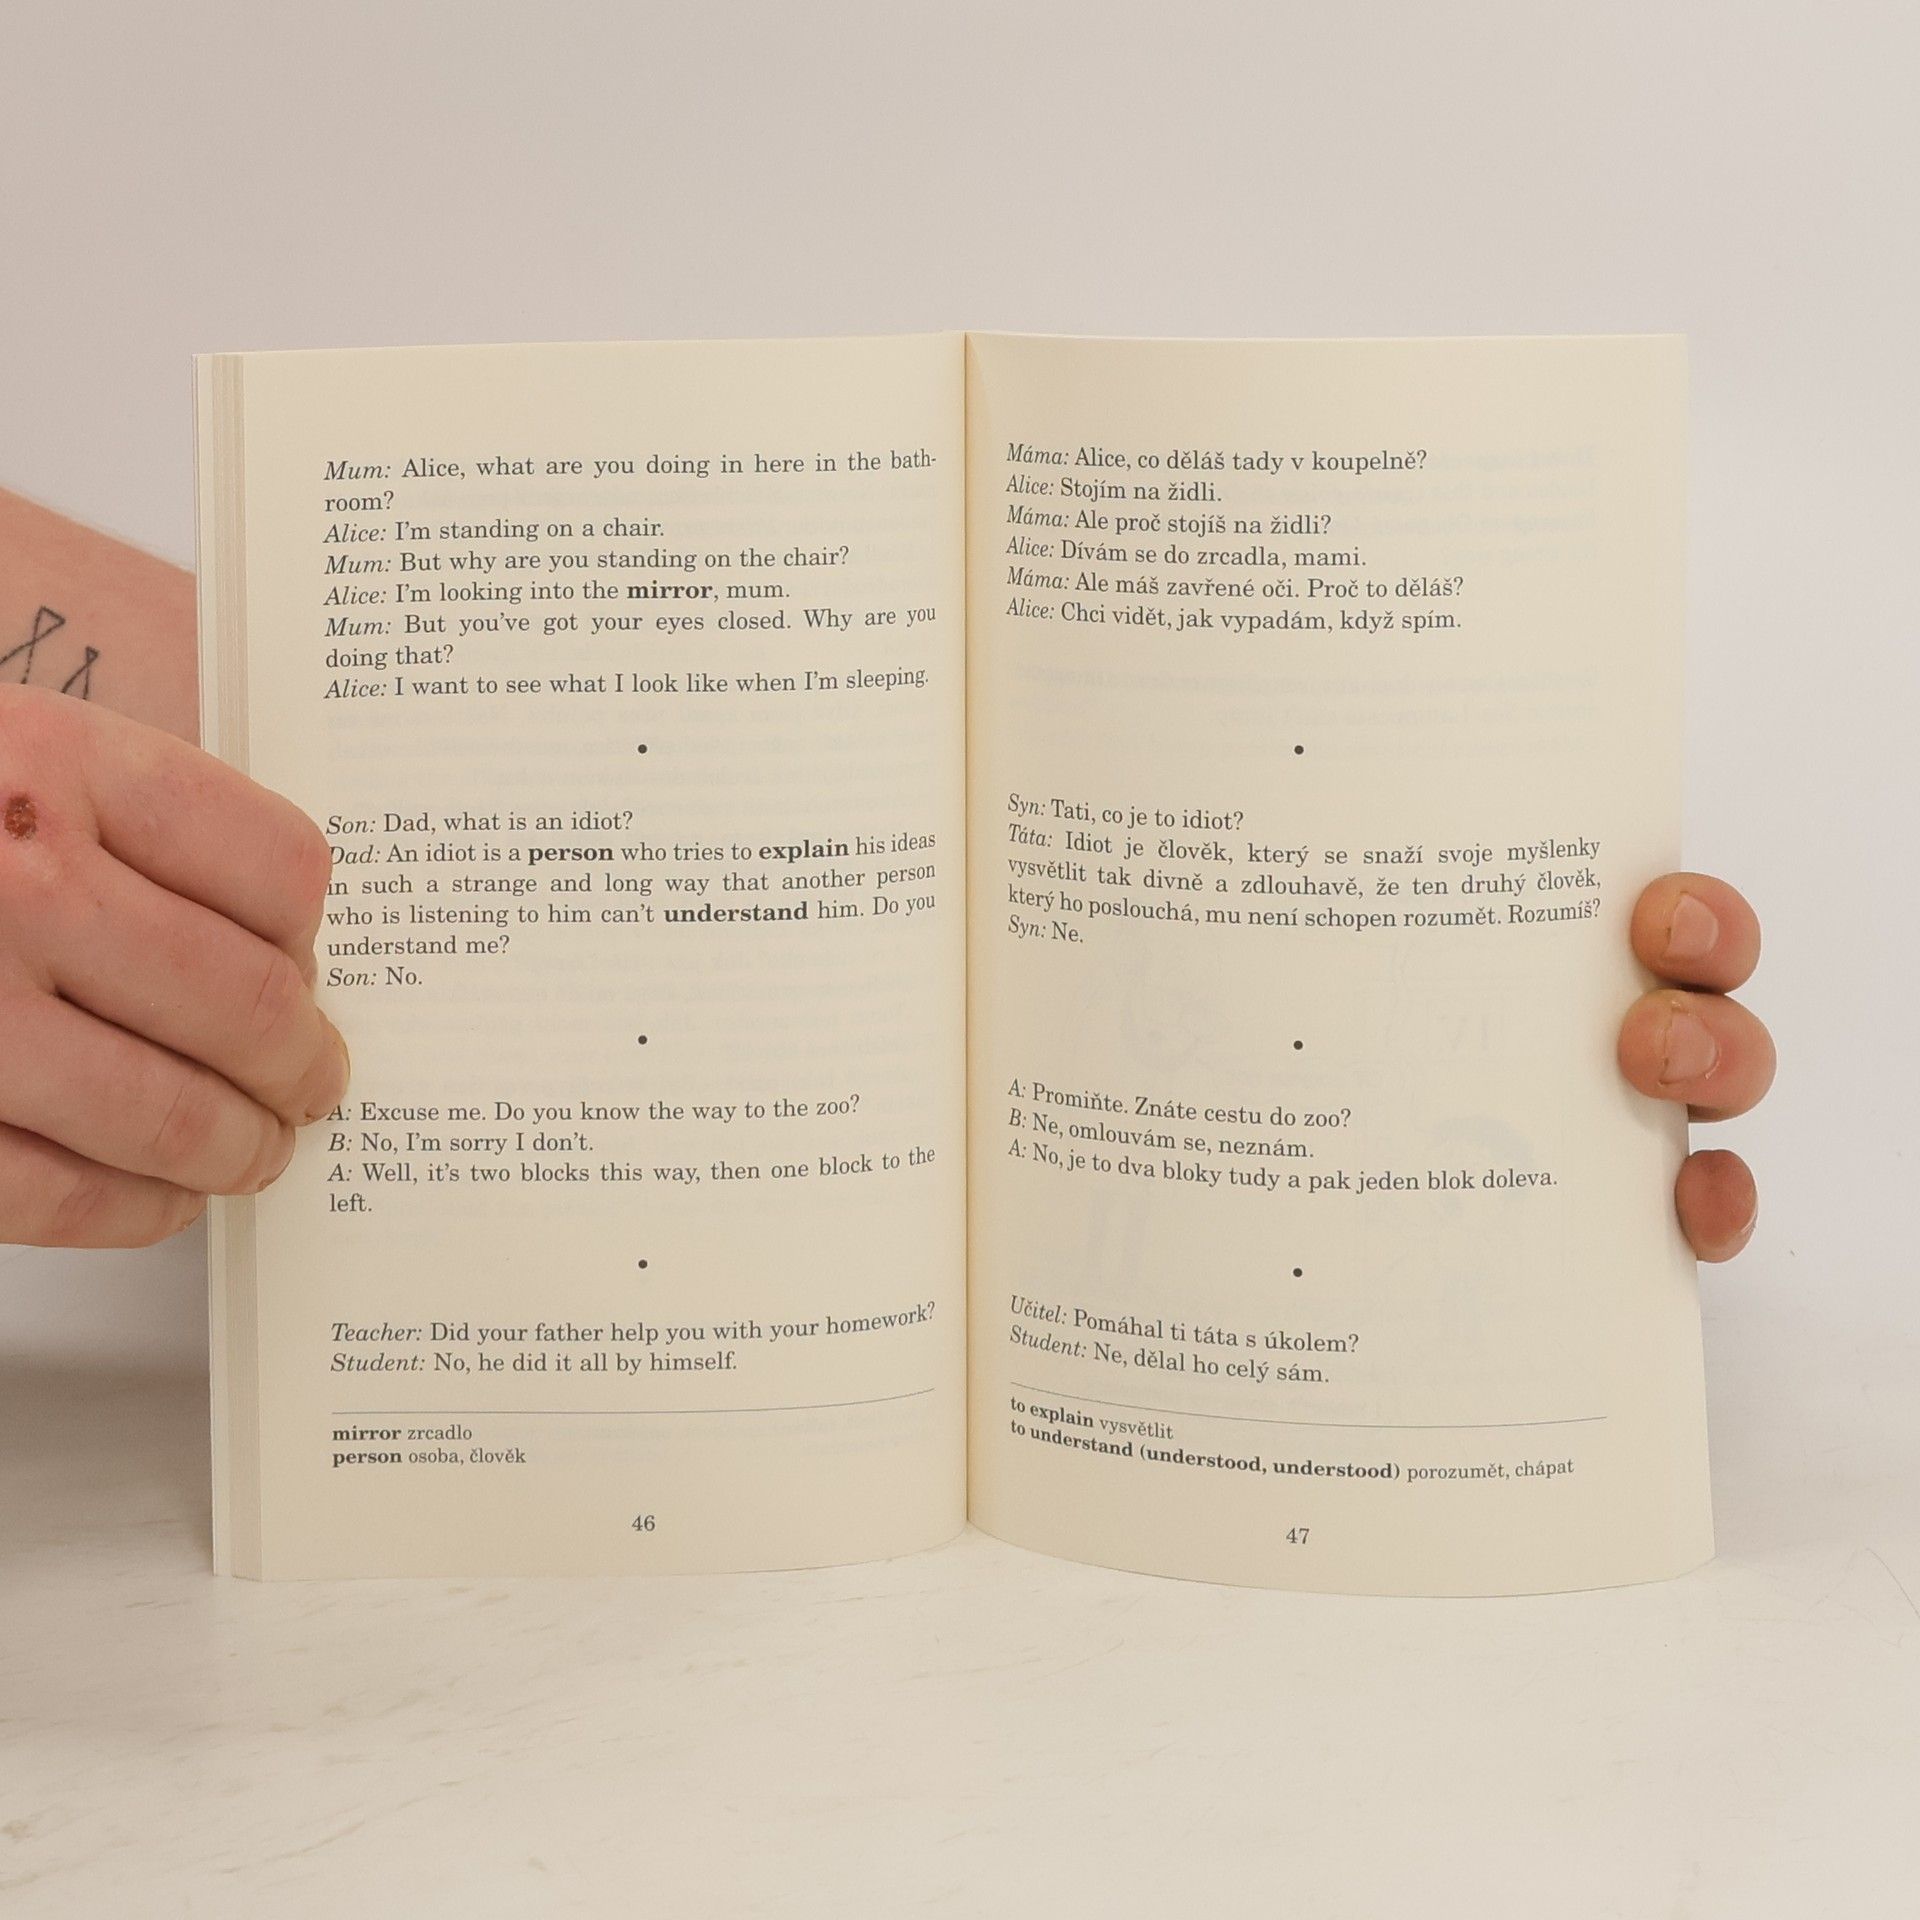 Mum: Alice, what are you doing in here in the bath-
room?
Alice: I'm standing on a chair.
Mum: But why are you standing on the chair?
Alice: I'm looking into the mirror, mum.
Mum: But you've got your eyes closed. Why are you
doing that?
Alice: I want to see what I look like when I'm sleeping.
•
Son: Dad, what is an idiot?
Dad: An idiot is a person who tries to explain his ideas
in such a strange and long way that another person
who is listening to him can't understand him. Do you
understand me?
Son: No.
•
A: Excuse me. Do you know the way to the zoo?
B: No, I'm sorry I don't.
A: Well, it's two blocks this way, then one block to the
left.
•
Teacher: Did your father help you with your homework?
Student: No, he did it all by himself.
mirror zrcadlo
person osoba, člověk
46
Máma: Alice, co děláš tady v koupelně?
Alice: Stojím na židli.
Máma: Ale proč stojíš na židli?
Alice: Dívám se do zrcadla, mami.
Máma: Ale máš zavřené oči. Proč to děláš?
Alice: Chci vidět, jak vypadám, když spím.
•
Syn: Tati, co je to idiot?
Táta: Idiot je člověk, který se snaží svoje myšlenky
vysvětlit tak divně a zdlouhavě, že ten druhý člověk,
který ho poslouchá, mu není schopen rozumět. Rozumíš?
Syn: Ne.
•
A: Promiňte. Znáte cestu do zoo?
B: Ne, omlouvám se, neznám.
A: No, je to dva bloky tudy a pak jeden blok doleva.
•
Učitel: Pomáhal ti táta s úkolem?
Student: Ne, dělal ho celý sám.
to explain vysvětlit
to understand (understood, understood) porozumět, chápat
47